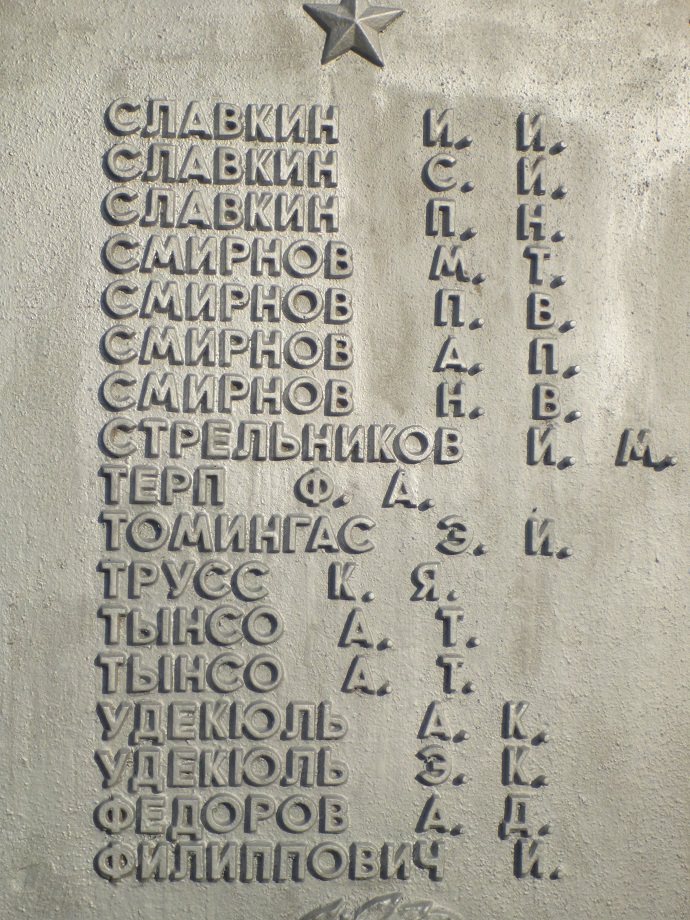 СЛАВКИН И. И.
СЛАВКИН С. И.
СЛАВКИН П. Н.
СМИРНОВ М. Т.
СМИРНОВ П. В.
СМИРНОВ А. П.
СМИРНОВ Н. В.
СТРЕЛЬНИКОВ И. М.
ТЕРП Ф. А.
ТОМИНГАС Э. И.
ТРУСС К. Я.
ТЫНСО А. Т.
ТЫНСО А. Т.
УДЕКЮЛЬ А. К.
УДЕКЮЛЬ Э. К.
ФЕДОРОВ А. Д.
ФИЛИППОВИЧ И.